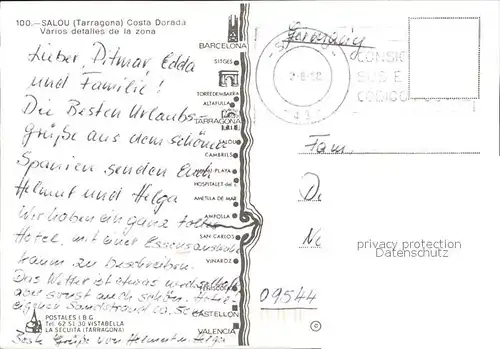 100.—SALOU (Tarragona) Costa Dorada
Varios detalles de la zona
Lieber Ditmar, Edda
und Familie!
Die Besten Urlaubs-
grüße aus dem schönen
Spanien senden Euch
Helmut und Helga
Wir haben ein ganz tolles
Hotel, mit einer Essensauswahl
kaum zu beschreiben.
Das Wetter ist etwas
aber sonst auch schön. Hotel
eigener Sandstrand ca. 50
Beste Grüße von Helmut u. Helga
POSTALES I B G
Tel. 62 51 30 VISTABELLA
LA SECUITA (TARRAGONA)
BARCELONA
SITGES
TORREDEMBARRA
ALTAFULLA
TARRAGONA
SALOU
CAMBRILS
MIAMI-PLAYA
HOSPITALET del I.
AMETLLA DE MAR
AMPOLLA
SAN CARLOS
VINAROZ
PEÑISCOLA
CASTELLON
VALENCIA
CONSIG
SUS E
CODIGO
Fam.
D
N
09544
privacy protection
Datenschutz
©